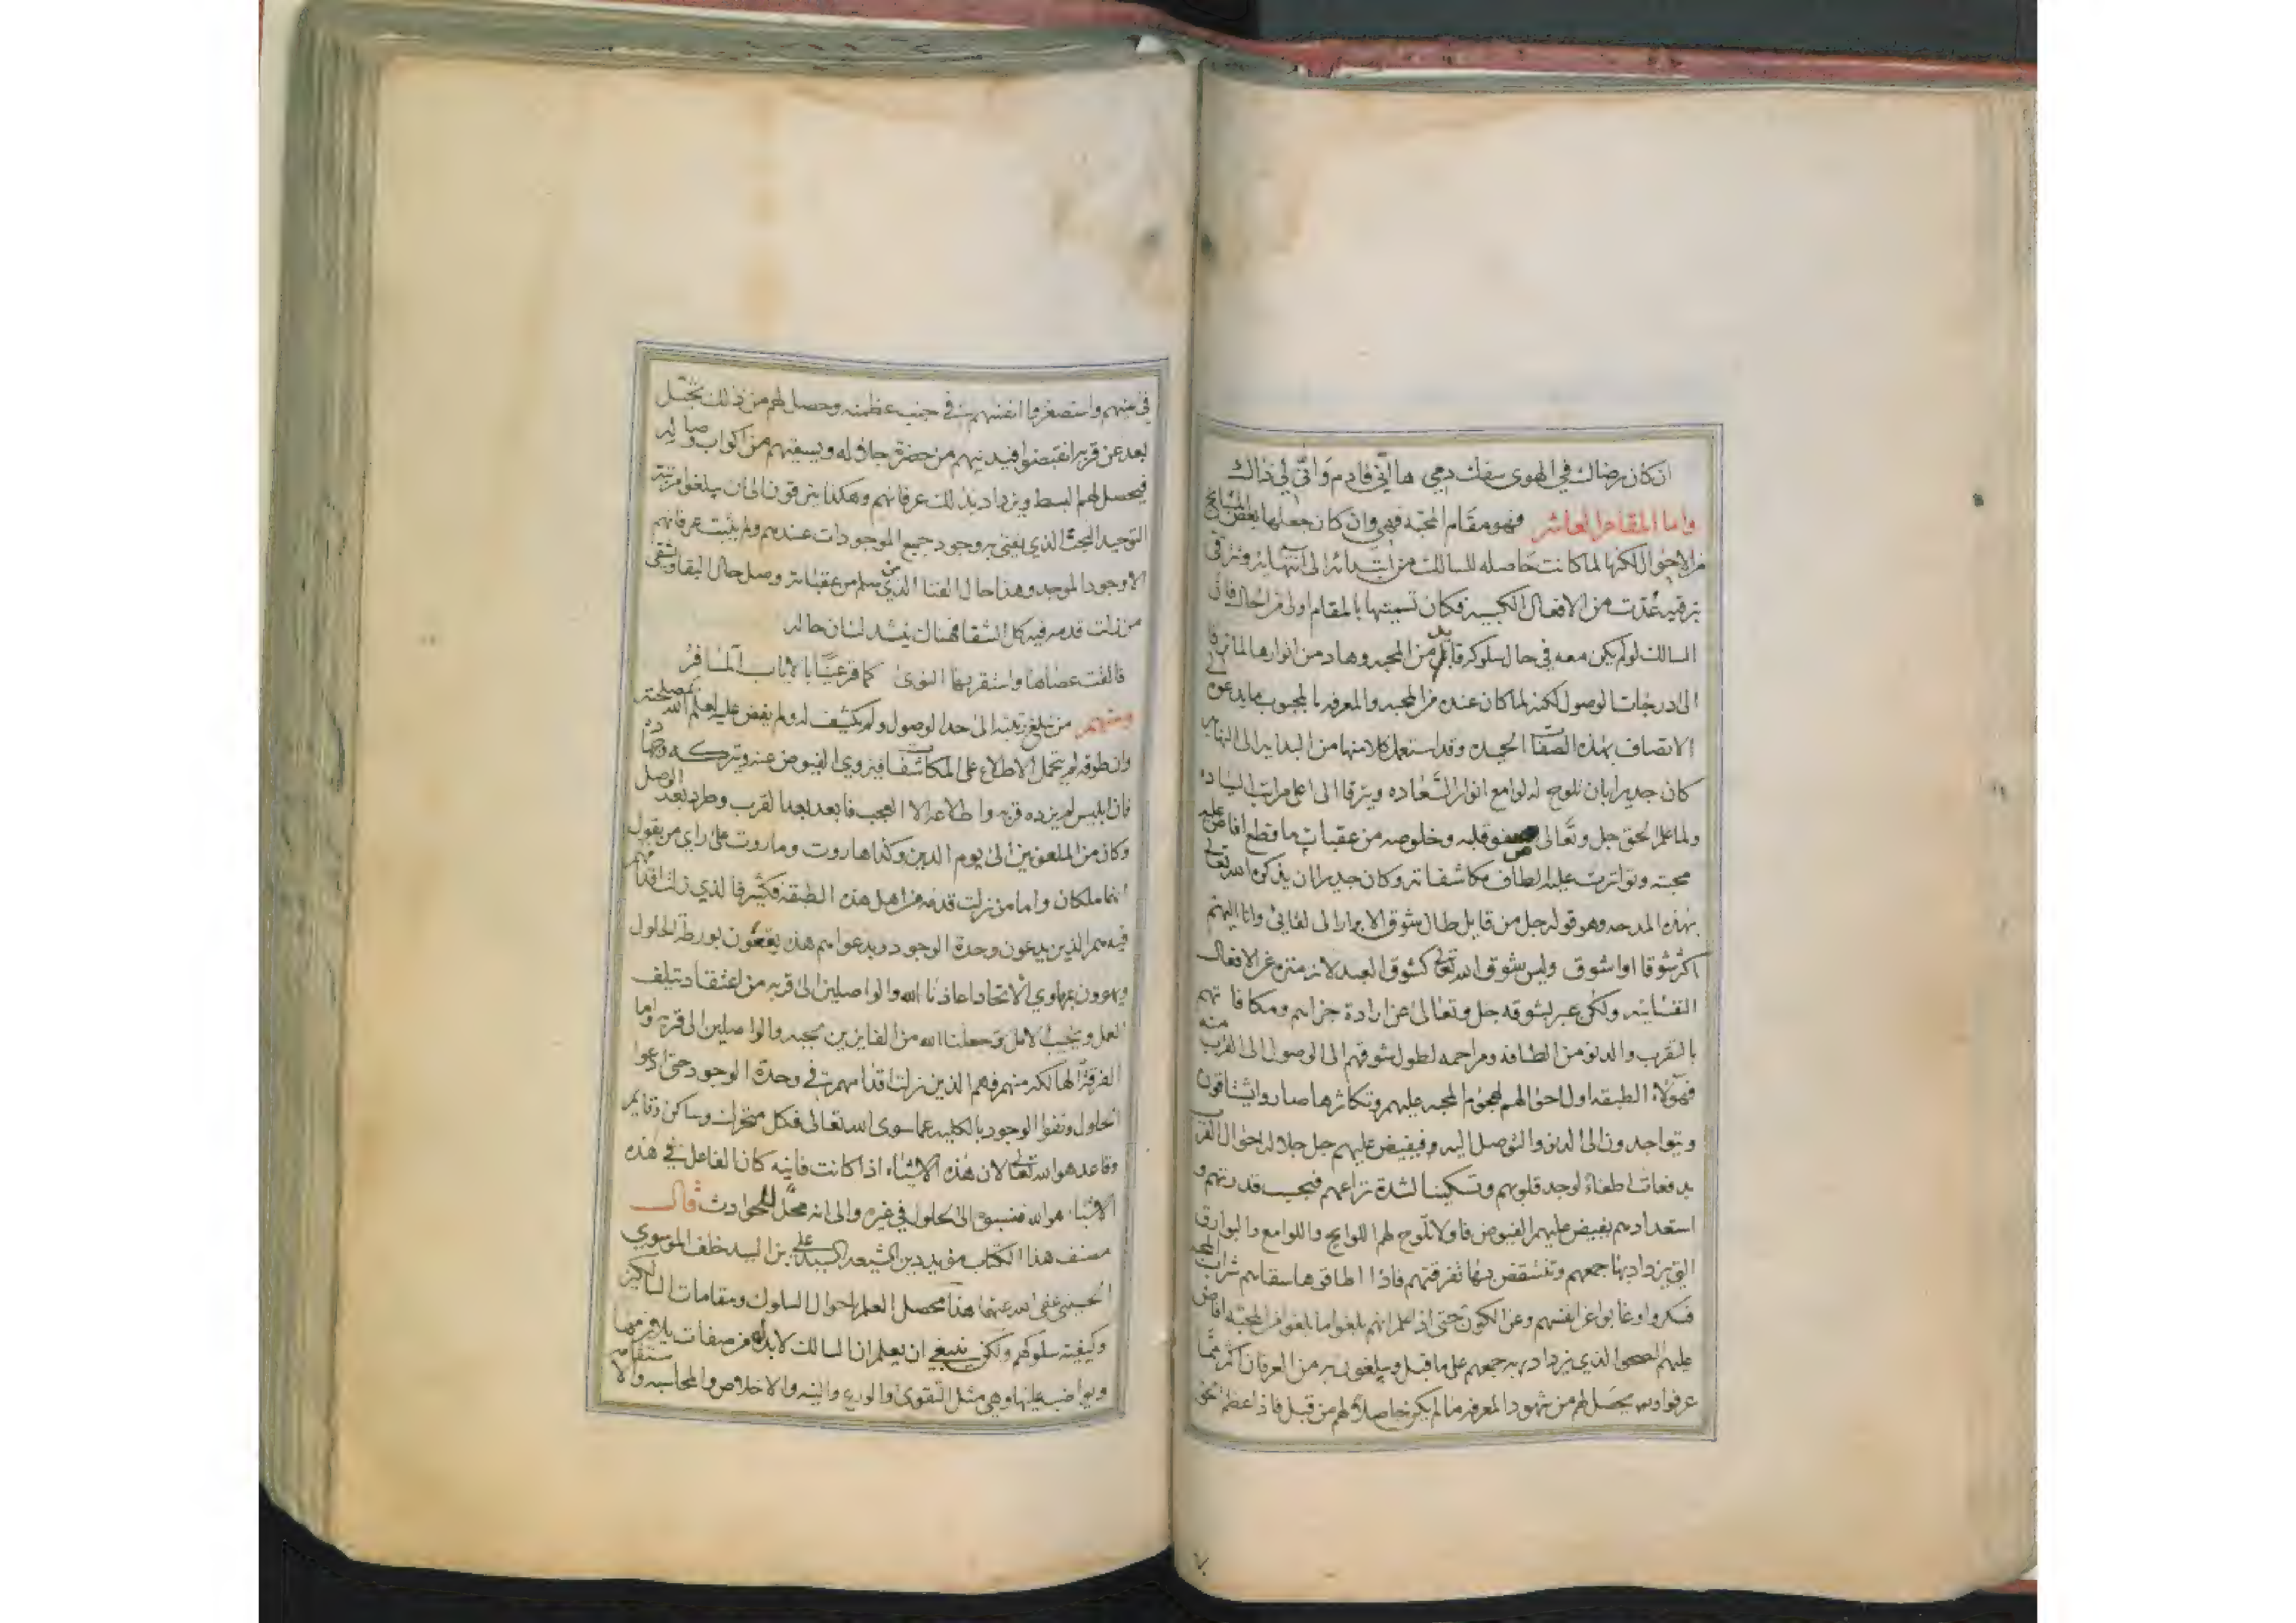 ان كان رضاك في الهوى سفك دمي ها اني قادم واني لي ذاك
واما المقام العاشر فهو مقام المحبه فهي وان كان جعلها بعض المشايخ
من الاحوال لكنها لما كانت حاصله للسالك من ابتدائه الى انتهائه وترقى
بترقيه عدت من الافعال الكسبيه فكان تسميتها بالمقام اولى من الحال فان
السالك لو لم يكن معه في حال سلوكه قايد من المحبه وهاد من انوارها لما ترقا
الى درجات الوصول لكنه لما كان عنده من المحبه والمعرفه بالمحبوب ما يدعوه الى
الاتصاف بهذه الصفات الحميده وقد استعمل كلا منها من البدايه الى النهايه
كان جديرا بان تلوح له لوامع انوار السعاده ويترقا الى اعلى مراتب السياده
ولما علم الحق جل وتعالى صفو قلبه وخلوصه من عقبات ما قطع افاض عليه
محبته وتواترت عليه الطاف مكاشفاته وكان جديرا ان يذكره الله تعالى
بهذه المدحه وهو قوله جل من قايل طال شوق الابرار الى لقائي وانا اليهم
اكثر شوقا او اشوق وليس شوق الله تعالى كشوق العبد لانه منزه عن الافعال
النفسانيه ولكن عبر بشوقه جل وتعالى عن ارادة جزاهم ومكافاتهم
بالتقرب والدنو من الطافه ومراحمه لطول شوقهم الى الوصول الى القرب منه
فهؤلاء الطبقه اول احوالهم لهجوم المحبه عليهم وتكاثرها صاروا يشتاقون
ويتواجدون الى الدنو والتوصل اليه فيفيض عليهم جل جلاله احوال القرب
بدفعات اطفاء لوجد قلوبهم وتسكينا لشدة نزاعهم فبحسب قدرتهم و
استعدادهم يفيض عليهم الفيوض فاولا تلوح لهم اللوايح واللوامع والبوارق
التي يزداد بها جمعهم وتنقض بها تفرقتهم فاذا اطاقوها سقاهم شراب المحبه
فسكروا وغابوا عن انفسهم وعن الكون حتى اذا علم انهم بلغوا ما بلغوا من المحبه افاض
عليهم الصحو الذي يزداد به جمعهم على ما قبل ويبلغون به من العرفان اكثر مما
عرفوا وبه يحصل لهم من شهود المعرفه ما لم يكن حاصلا لهم من قبل فاذا عظم الحق
في عينهم واستصغروا انفسهم في جنب عظمته وحصل لهم من ذلك تخيل
بعد عن قربه انقبضوا فيدنيهم من حضرة جلاله ويسقيهم من اكواب وصاله
فيحصل لهم البسط ويزداد بذلك عرفانهم وهكذا يترقون الى ان يبلغوا مرتبة
التوحيد البحث الذي يفنى به وجود جميع الموجودات عندهم ولم يثبت عرفانهم
الا وجود الموجد وهذا حال الفنا الذي من سلم من عقباته وصل حال البقا ويشقى
من زلت قدمه فيه كل الشقا فهناك ينشد لسان حاله
فالقت عصاها واستقر بها النوى كما قر عينا بالاياب المسافر
ومنهم من بلغ رتبته الى حد الوصول ولم يكشف له ولم يفض عليه لعلم الله بمصلحته
وان طوقه لم يتحمل الاطلاع على المكاشفات فيزوي الفيوض عنه وتركه
فان ابليس لم يزده قربه واطلاعه الا العجب فابعد بعد القرب وطرد بعد الوصل
وكان من الملعونين الى يوم الدين وكذا هاروت وماروت على راي من يقول
انهما ملكان واما من زلت قدمه من اهل هذه الطبقه فكثير فالذي زلت اقدامهم
فيه هم الذين يدعون وحدة الوجود وبدعواهم هذه يقعون بورطة الحلول
ويهوون بمهاوي الاتحاد اعاذنا الله والواصلين الى قربه من اعتقاد يتلف
العمل ويخيب الامل وجعلنا الله من الفايزين بمحبته والواصلين الى قربه واما
الفرقة الهالكه منهم فهم الذين زلت اقدامهم في وحدة الوجود حتى ادعوا
الحلول ونفوا الوجود بالكليه عما سوى الله تعالى فكل متحرك وساكن وقايم
وقاعد هو الله تعالى لان هذه الاشياء اذا كانت فانيه كان الفاعل في هذه
الاشياء هو الله فنسبوه الى الحلول في غيره والى انه محل للحوادث قال
مصنف هذا الكتاب مؤيد دين الشيعه السيد علي بن السيد خلف الموسوي
الحسيني عفى الله عنهما هذا محصل العلم باحوال السلوك ومقامات السالكين
وكيفية سلوكهم ولكن ينبغي ان يعلم ان السالك لا بد له من صفات يلازمها
ويواضب عليها وهي مثل التقوى والورع والنيه والاخلاص والمحاسبه والاستقامه